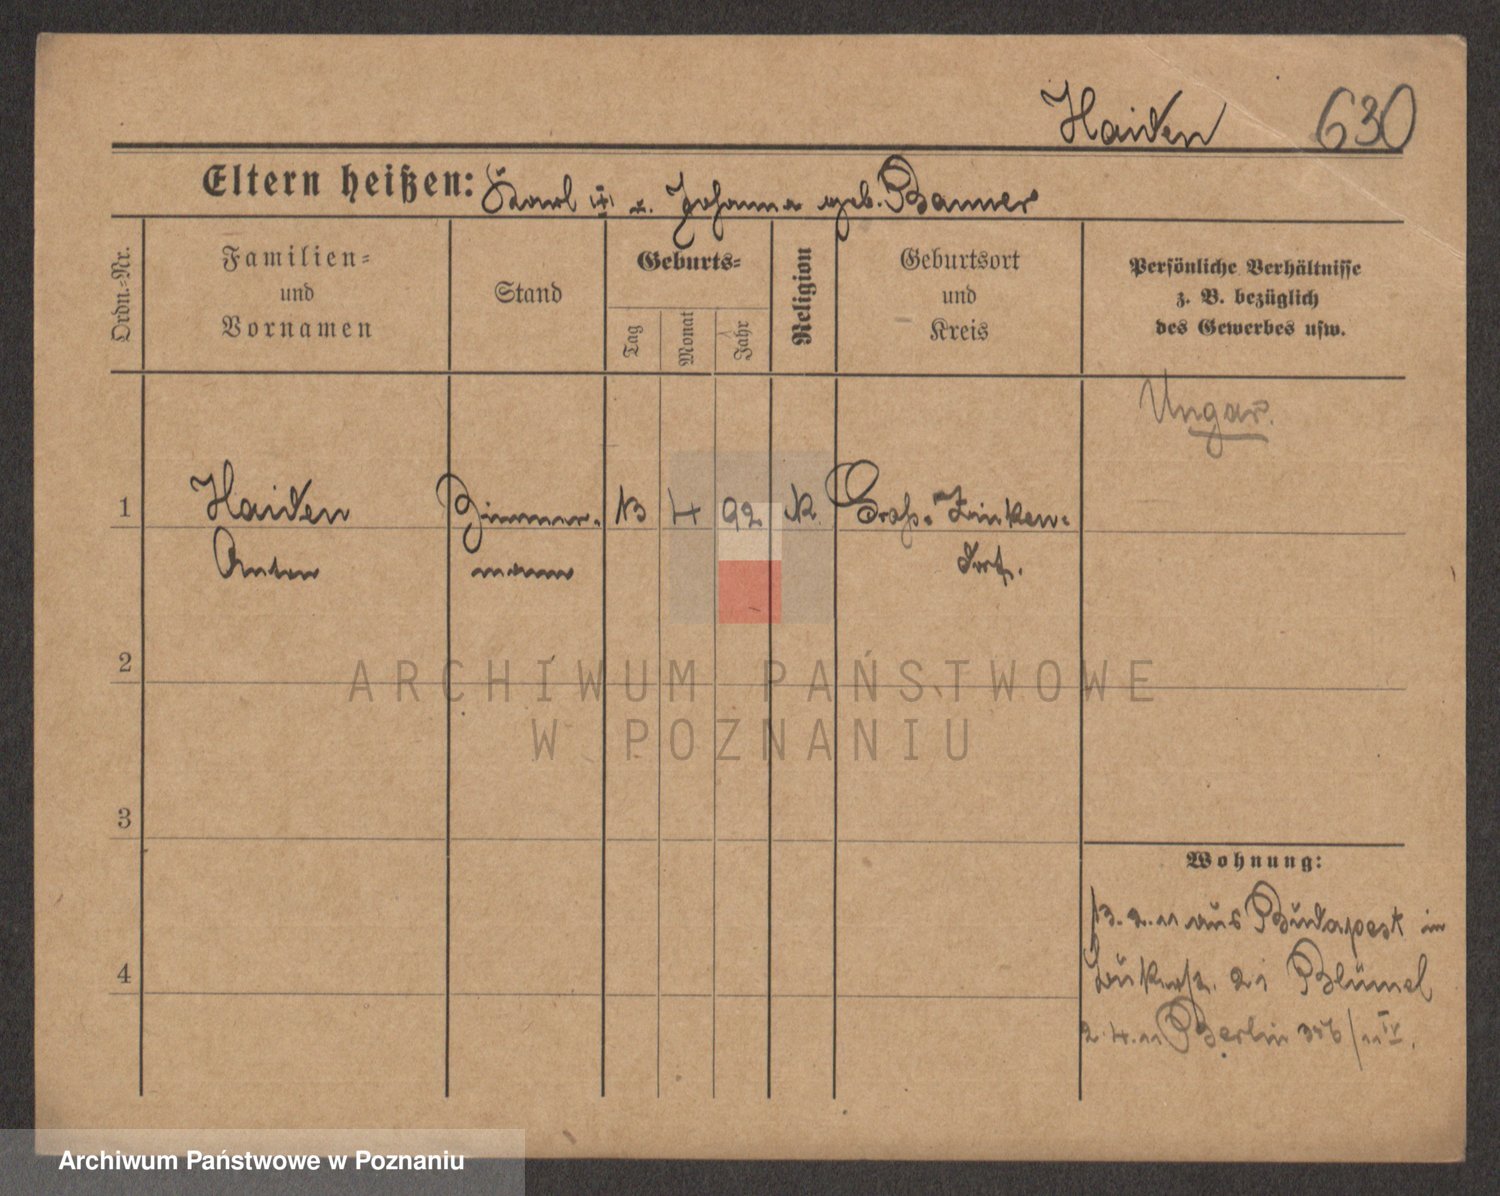 Haiden 630
Eltern heißen: Karl u. Johanna geb. Banner
Ordn.-Nr.
Familien-
und
Vornamen
Stand
Geburts-
Tag
Monat
Jahr
Religion
Geburtsort
und
Kreis
Persönliche Verhältnisse
z. B. bezüglich
des Gewerbes usw.
Ungar.
1 Haiden Zimmer- 13 4 92 K. Groß-Zinken-
Anton mann dorf.
2
ARCHIWUM PAŃSTWOWE
W POZNANIU
3
Wohnung:
13. 2. 11 aus Budapest in
4 21 Blümel
2. 4. 11 Berlin 356/11 IV.
Archiwum Państwowe w Poznaniu